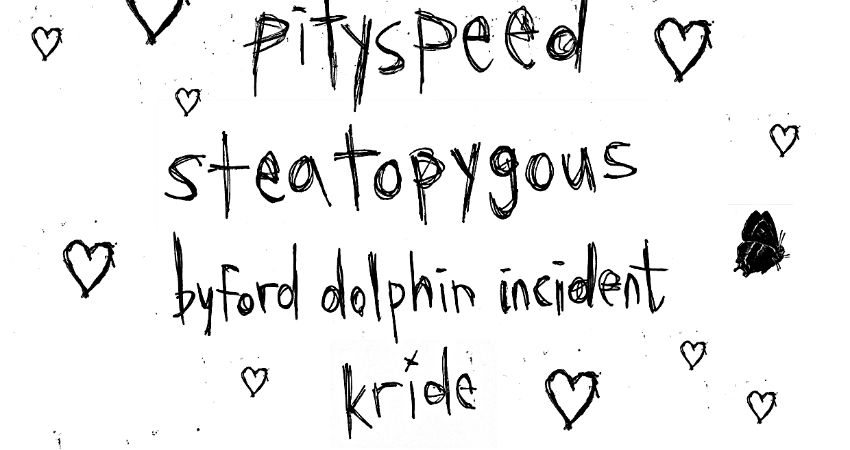 pityspeed
steatopygous
byford dolphin incident
kride